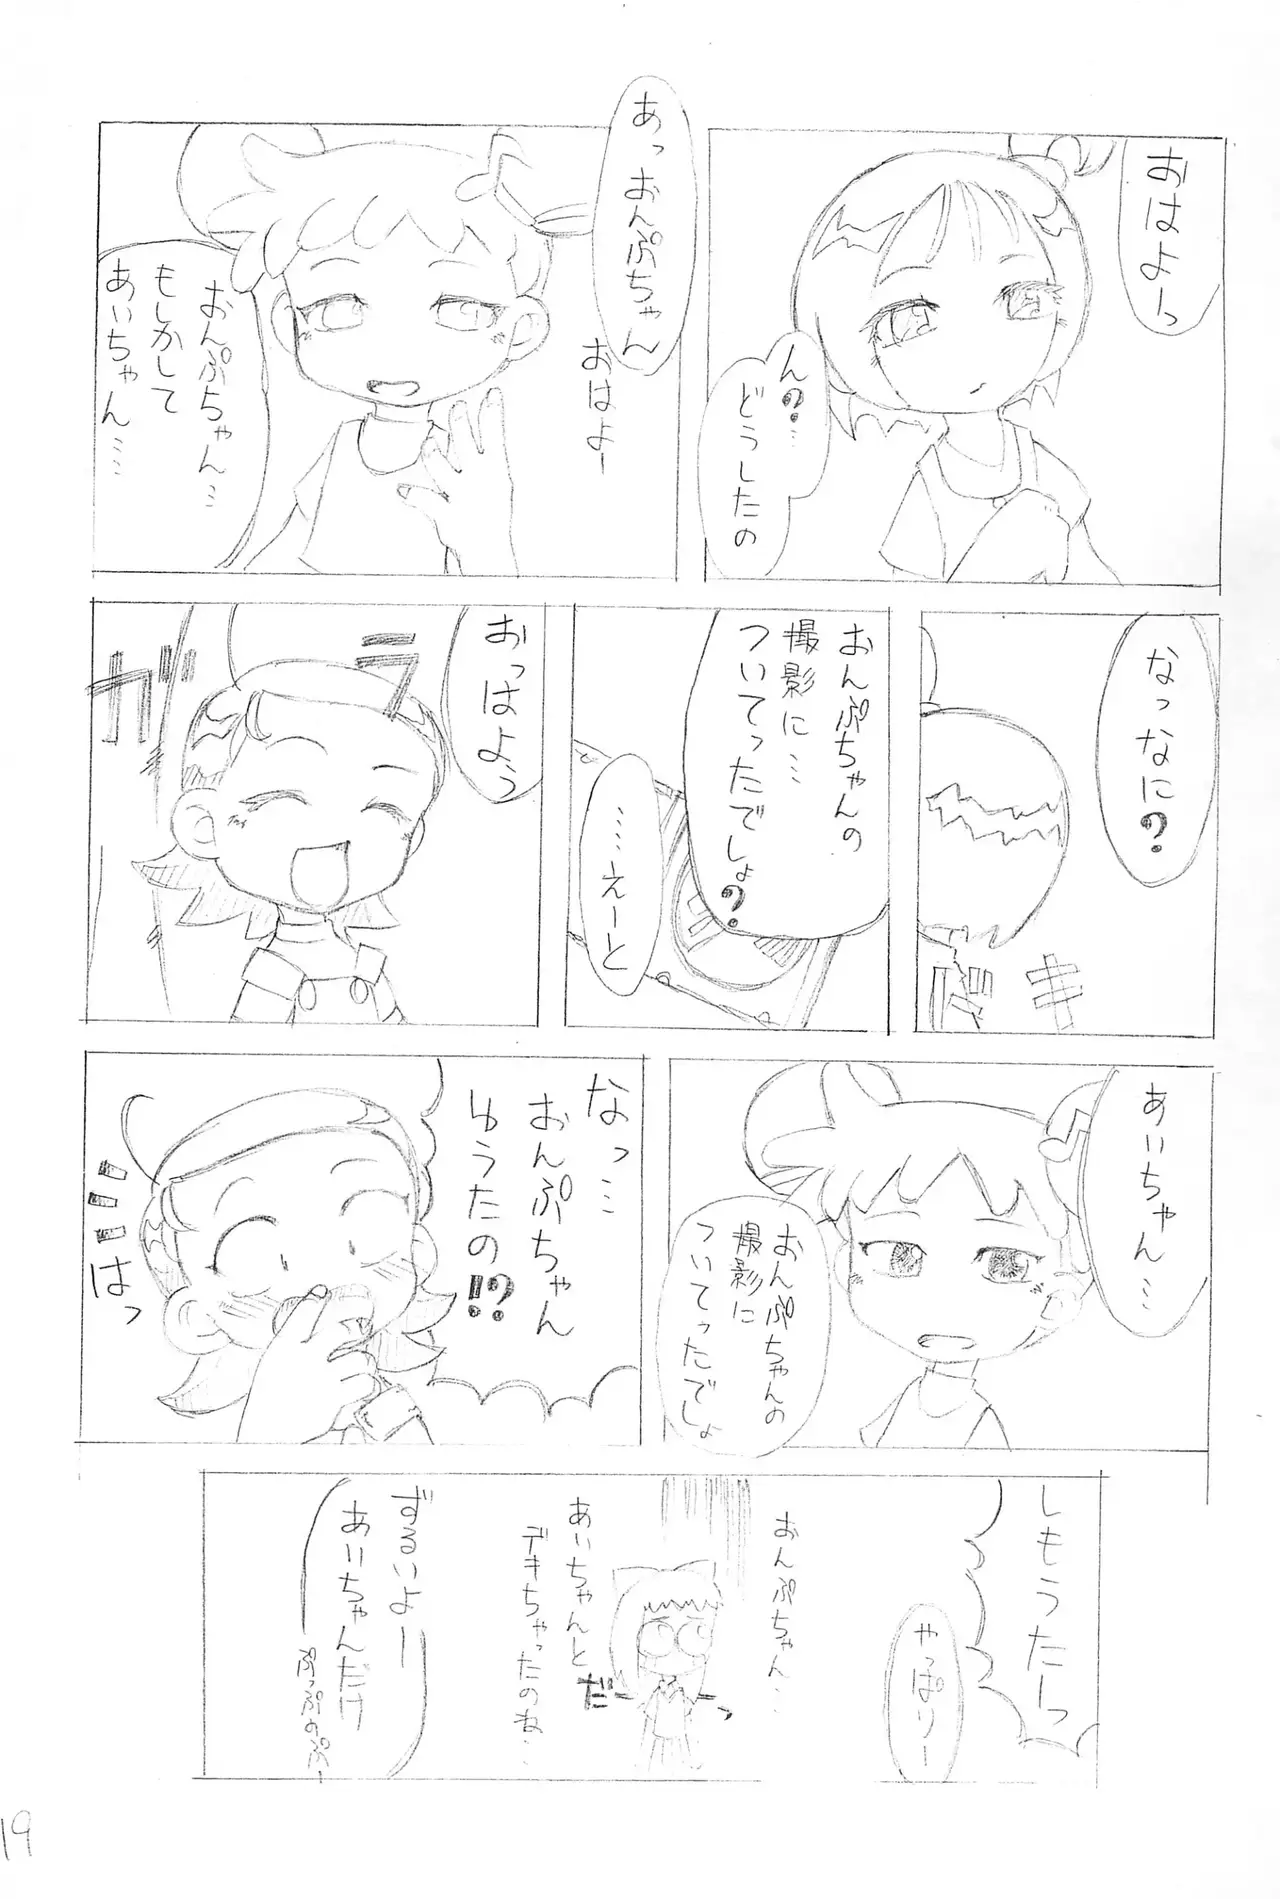 おはよーっ
ん?…
どうしたの
あっおんぷちゃん
おはよー
おんぷちゃん…
もしかして
あいちゃん……
なっなに?
ドキ
おんぷちゃんの
撮影に…
ついてったでしょ?
……えーと
おっはよう
ガラ
あいちゃん…
おんぷちゃんの
撮影に
ついてったでしょ
なっ…
おんぷちゃん
ゆうたの!?
はっ
しもうたーっ
やっぱりー
おんぷちゃん…
あいちゃんと
デキちゃったのね…
だーっ
ずるいよー
あいちゃんだけ
ぷっぷのぷー
19